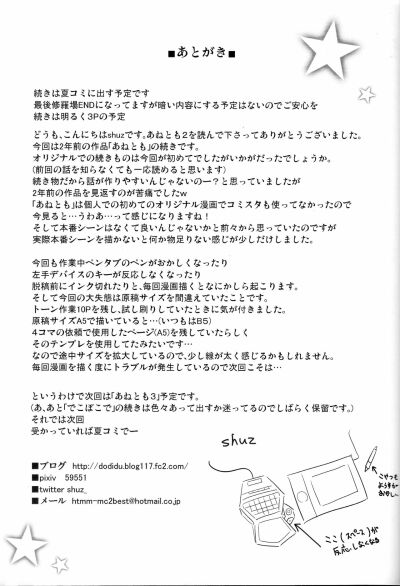 ■あとがき■
続きは夏コミに出す予定です
最後修羅場ENDになってますが暗い内容にする予定はないのでご安心を
続きは明るく3Pの予定
どうも、こんにちはshuzです。あねとも2を読んで下さってありがとうございました。
今回は2年前の作品「あねとも」の続きです。
オリジナルでの続きものは今回が初めてでしたがいかがだったでしょうか。
(前回の話を知らなくても一応読めると思います)
続き物だから話が作りやすいんじゃないのー?と思っていましたが
2年前の作品を見返すのが苦痛でしたw
「あねとも」は個人での初めてのオリジナル漫画でコミスタも使ってなかったので
今見ると…うわあ…って感じになりますね!
そして本番シーンはなくて良いんじゃないかと前々から思っていたのですが
実際本番シーンを描かないと何か物足りない感じが少しだけしました。
今回も作業中ペンタブのペンがおかしくなったり
左手デバイスのキーが反応しなくなったり
脱稿前にインク切れたりと、毎回漫画描くとなにかしら起こります。
そして今回の大失態は原稿サイズを間違えていたことです。
トーン作業10Pを残し、試し刷りしていたときに気が付きました。
原稿サイズA5で描いていると…(いつもはB5)
4コマの依頼で使用したページ(A5)を残していたらしく
そのテンプレを使用してたみたいです…
なので途中サイズを拡大しているので、少し線が太く感じるかもしれません。
毎回漫画を描く度にトラブルが発生しているので次回こそは…
というわけで次回は「あねとも3」予定です。
(あ、あと「でこぼこで」の続きは色々あって出すか迷ってるのでしばらく保留です。)
それでは次回
受かっていれば夏コミでー
shuz
■ブログ http://dodidu.blog117.fc2.com/
■pixiv 59551
■twitter shuz_
■メール htmm-mc2best@hotmail.co.jp
こやつも
ようすが
おかしい…
ここ(スペース)が
反応しなくなる